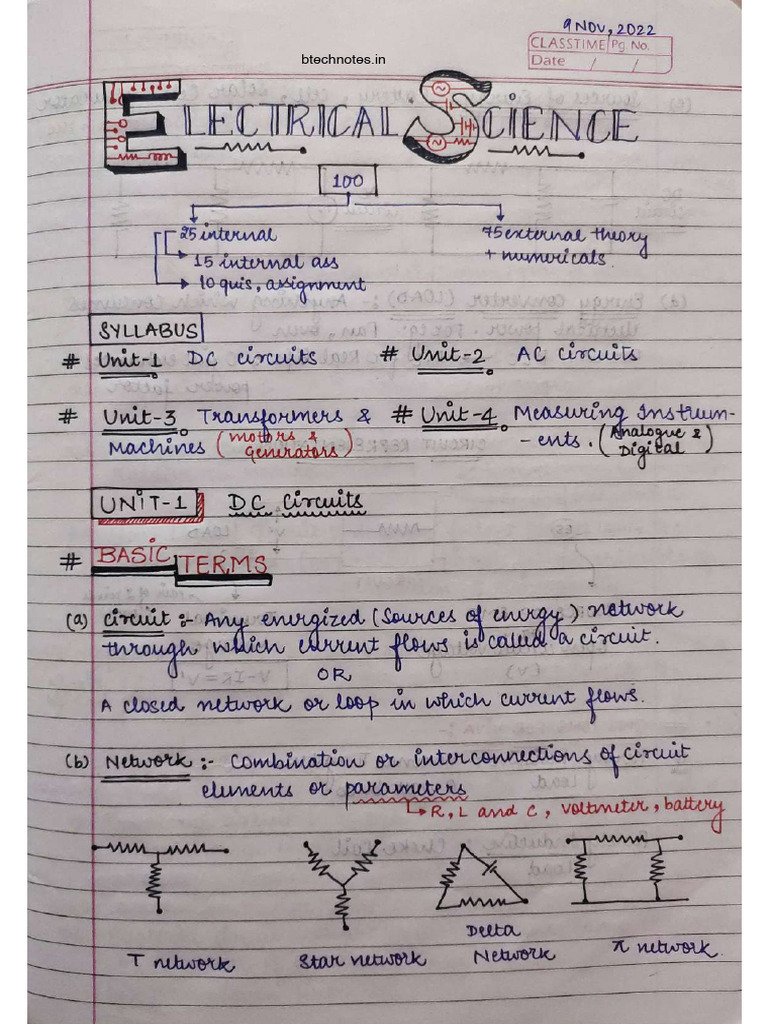 9 NOV, 2022
btechnotes.in
CLASSTIME Pg. No.
Date / /
ELECTRICAL SCIENCE
100
25 internal
75 external theory
+ numericals.
15 internal ass
10 quis, assignment
SYLLABUS
# Unit-1 DC circuits # Unit-2 AC circuits
# Unit-3 Transformers & # Unit-4 Measuring Instrum-
Machines (motors & -ents. (Analogue &
Generators) Digital)
UNIT-1 DC Circuits
# BASIC TERMS
(a) Circuit :- Any energized (Sources of energy) network
through which current flows is called a circuit.
OR
A closed network or loop in which current flows.
(b) Network :- Combination or interconnections of circuit
elements or parameters
R, L and C, voltmeter, battery
T network Star network Delta Network π network